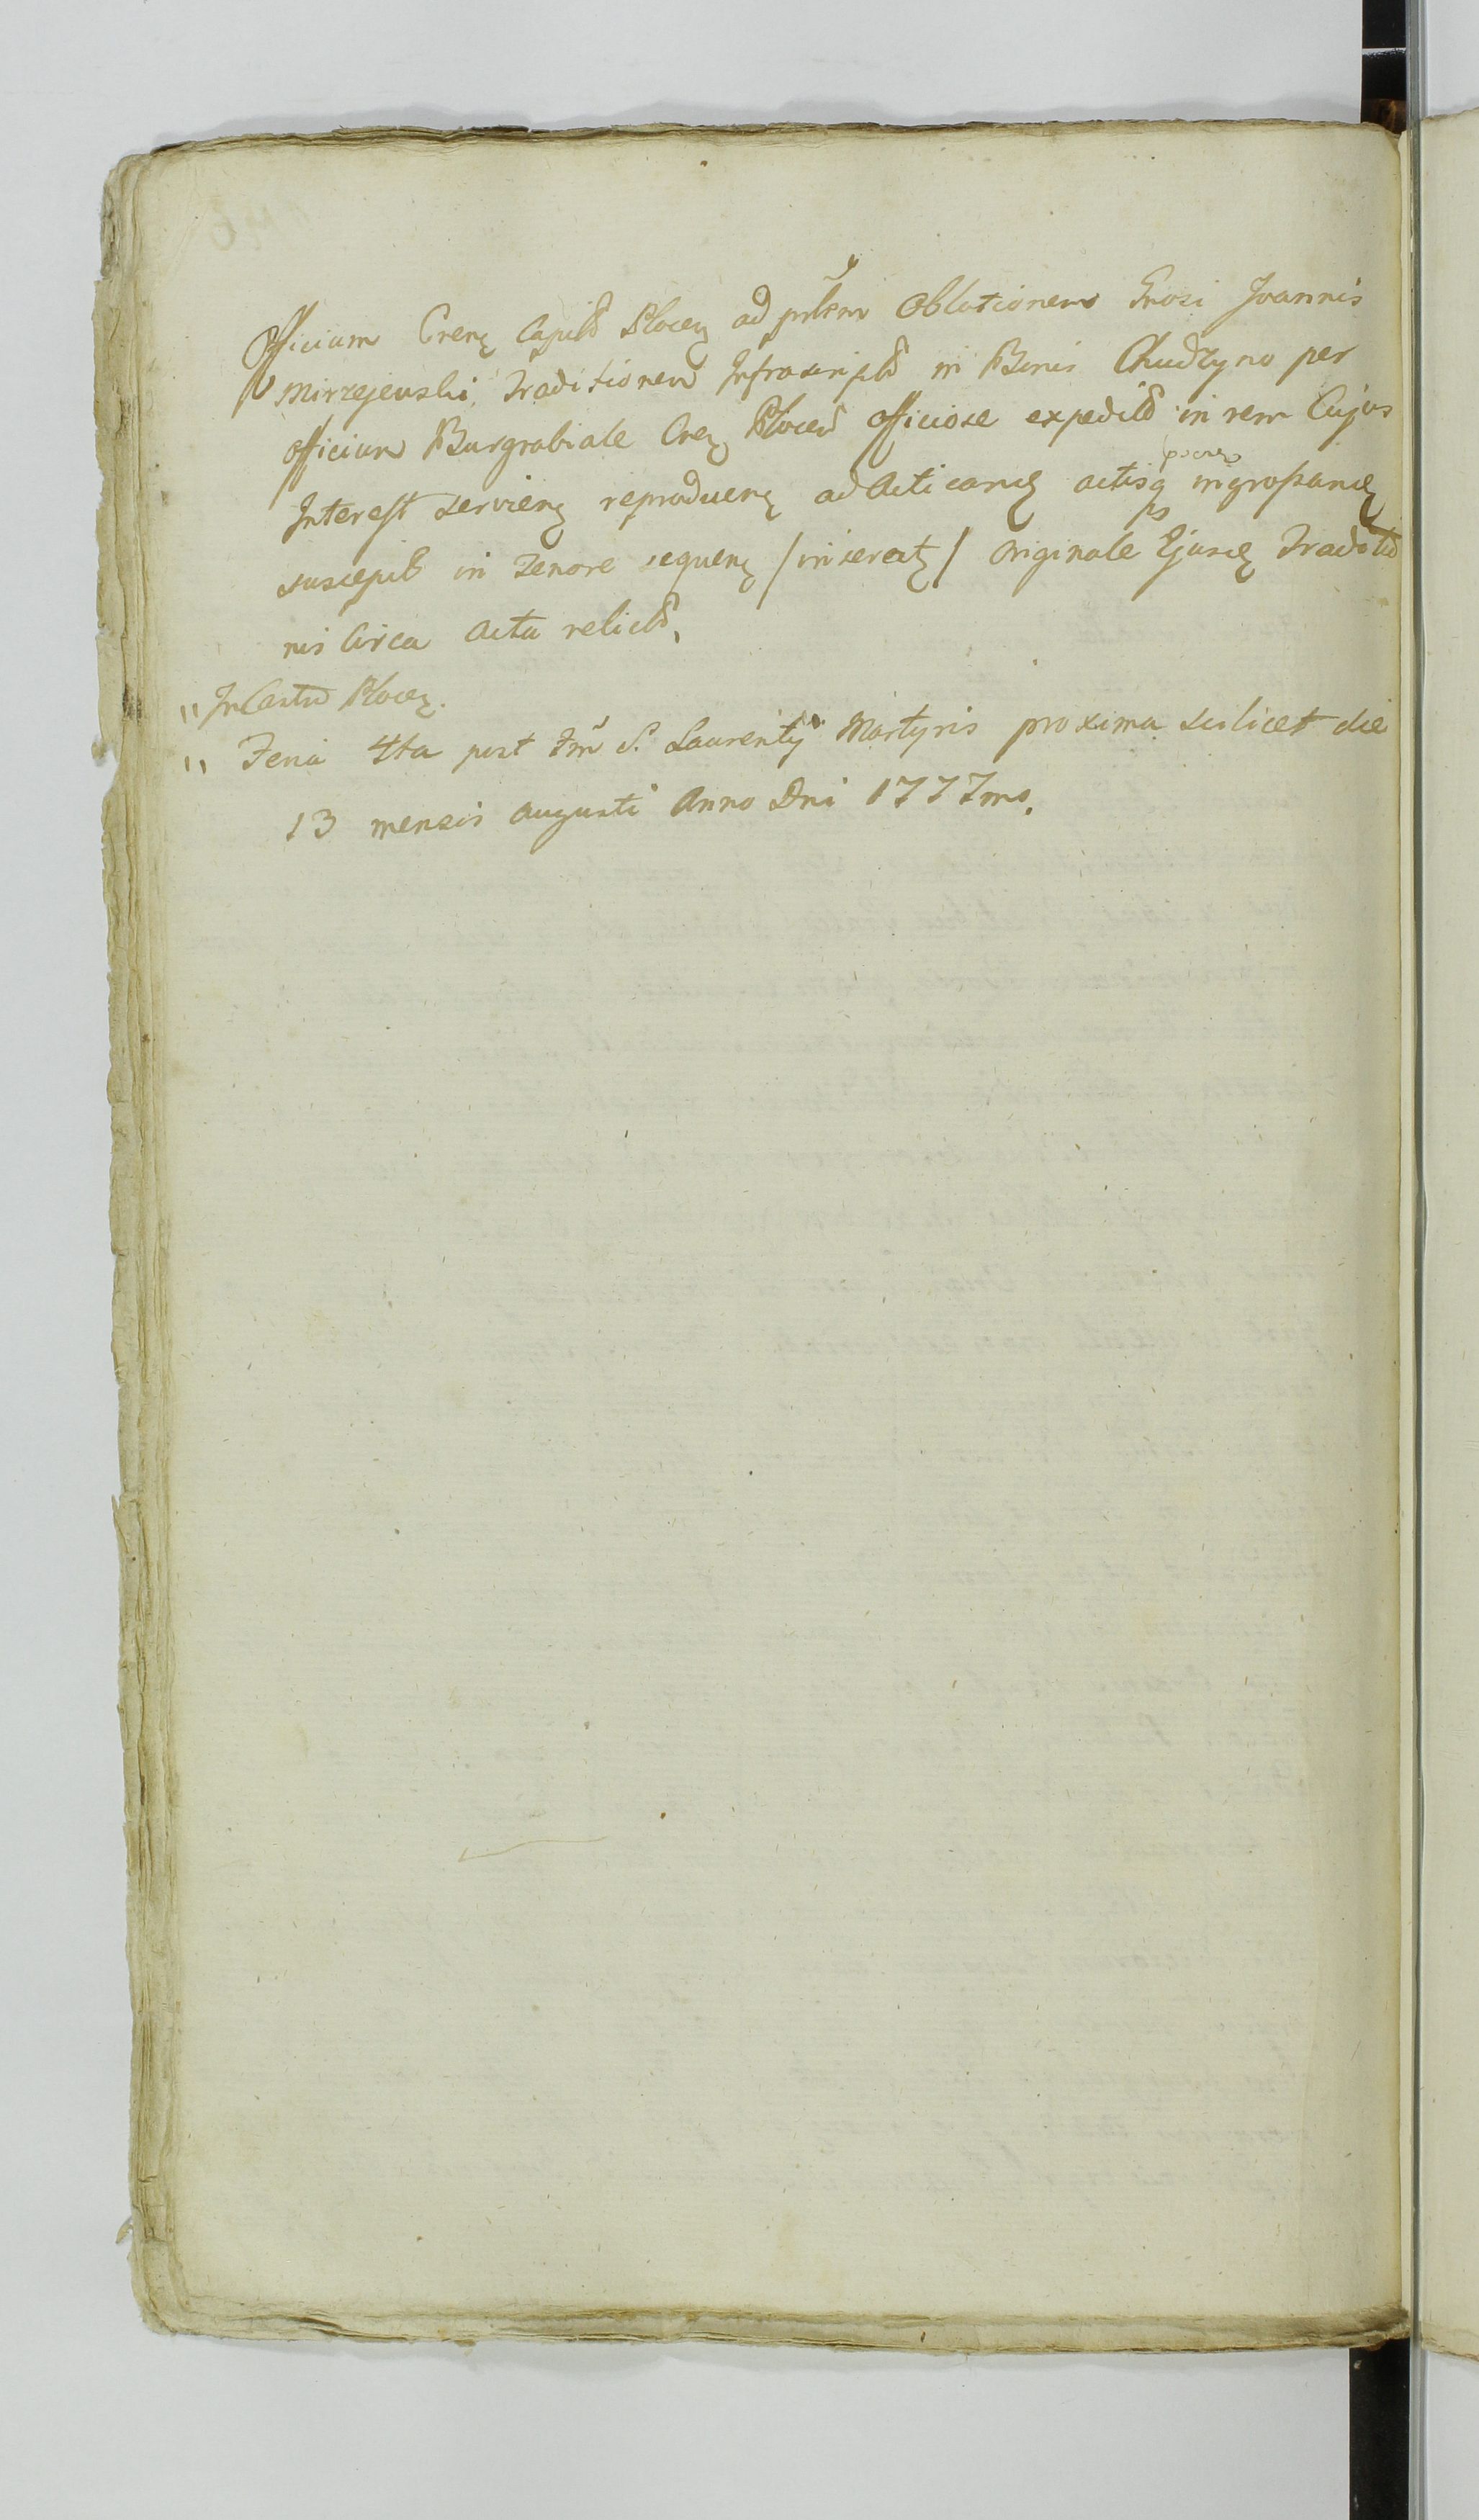 Officium Crenę Capitł Plocenę ad pntem Oblationem Grosi Joannis
Mirzejewski, Traditionem Infrascriptł in Bonis Chudzyno per
officium Burgrabiale Crenę Plocen officiose expeditł in rem Cujus
Interest servienę reproducenę ad Acticandę actisq ingrossandę
suscepit in Tenore sequenę / inseratę / Originale Ejusdę Traditio
nis Circa Acta relictł,
" In Castro Plocenę.
" Feria 4ta post Fm S. Laurentij Martyris proxima scilicet die
13 mensis Augusti Anno Dni 1777mo.